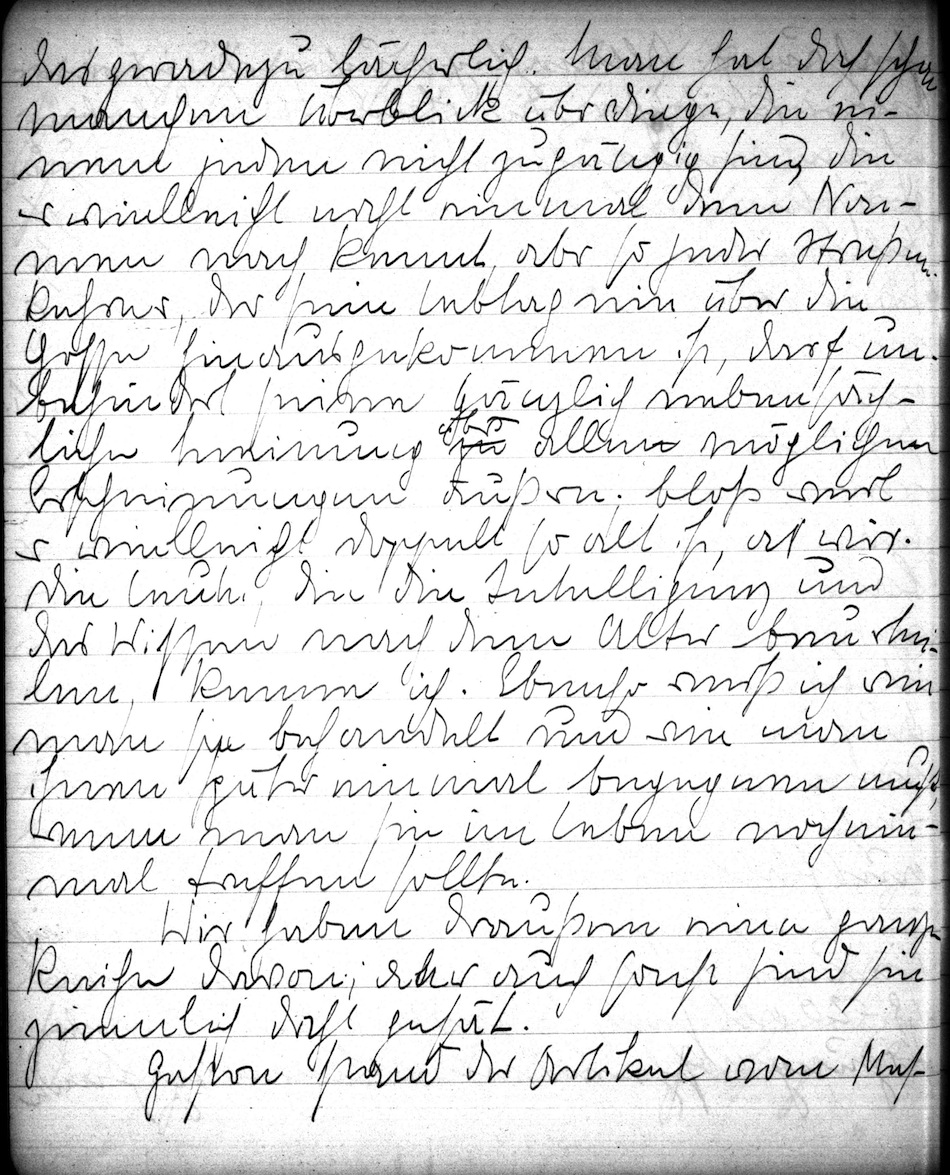 das geradezu lächerlich. Man hat doch schon
manchen Überblick über Dinge, die ei-
nem jeden nicht zugängig sind, die
er vielleicht nicht einmal dem Na-
men nach kennt, aber so jeder Straßen-
kehrer, der sein Lebtag nie über die
Gosse hinausgekommen ist, darf un-
behindert seine gänzlich nebensäch-
liche Meinung über allen möglichen
Erscheinungen äußern. bloß weil
er vielleicht doppelt so alt ist, als wir.
Die Leute, die die Intelligenz und
das Wissen nach dem Alter beurtei-
len, kenne ich. Ebenso weiß ich wie
man sie behandelt und wie man
ihnen später einmal begegnen muß,
wenn man sie im Leben nochein-
mal treffen sollte.
Wir haben draußen eine ganze
Reihe davon; aber auch sonst sind sie
ziemlich dicht gesät.
Gestern stand der Artikel vom